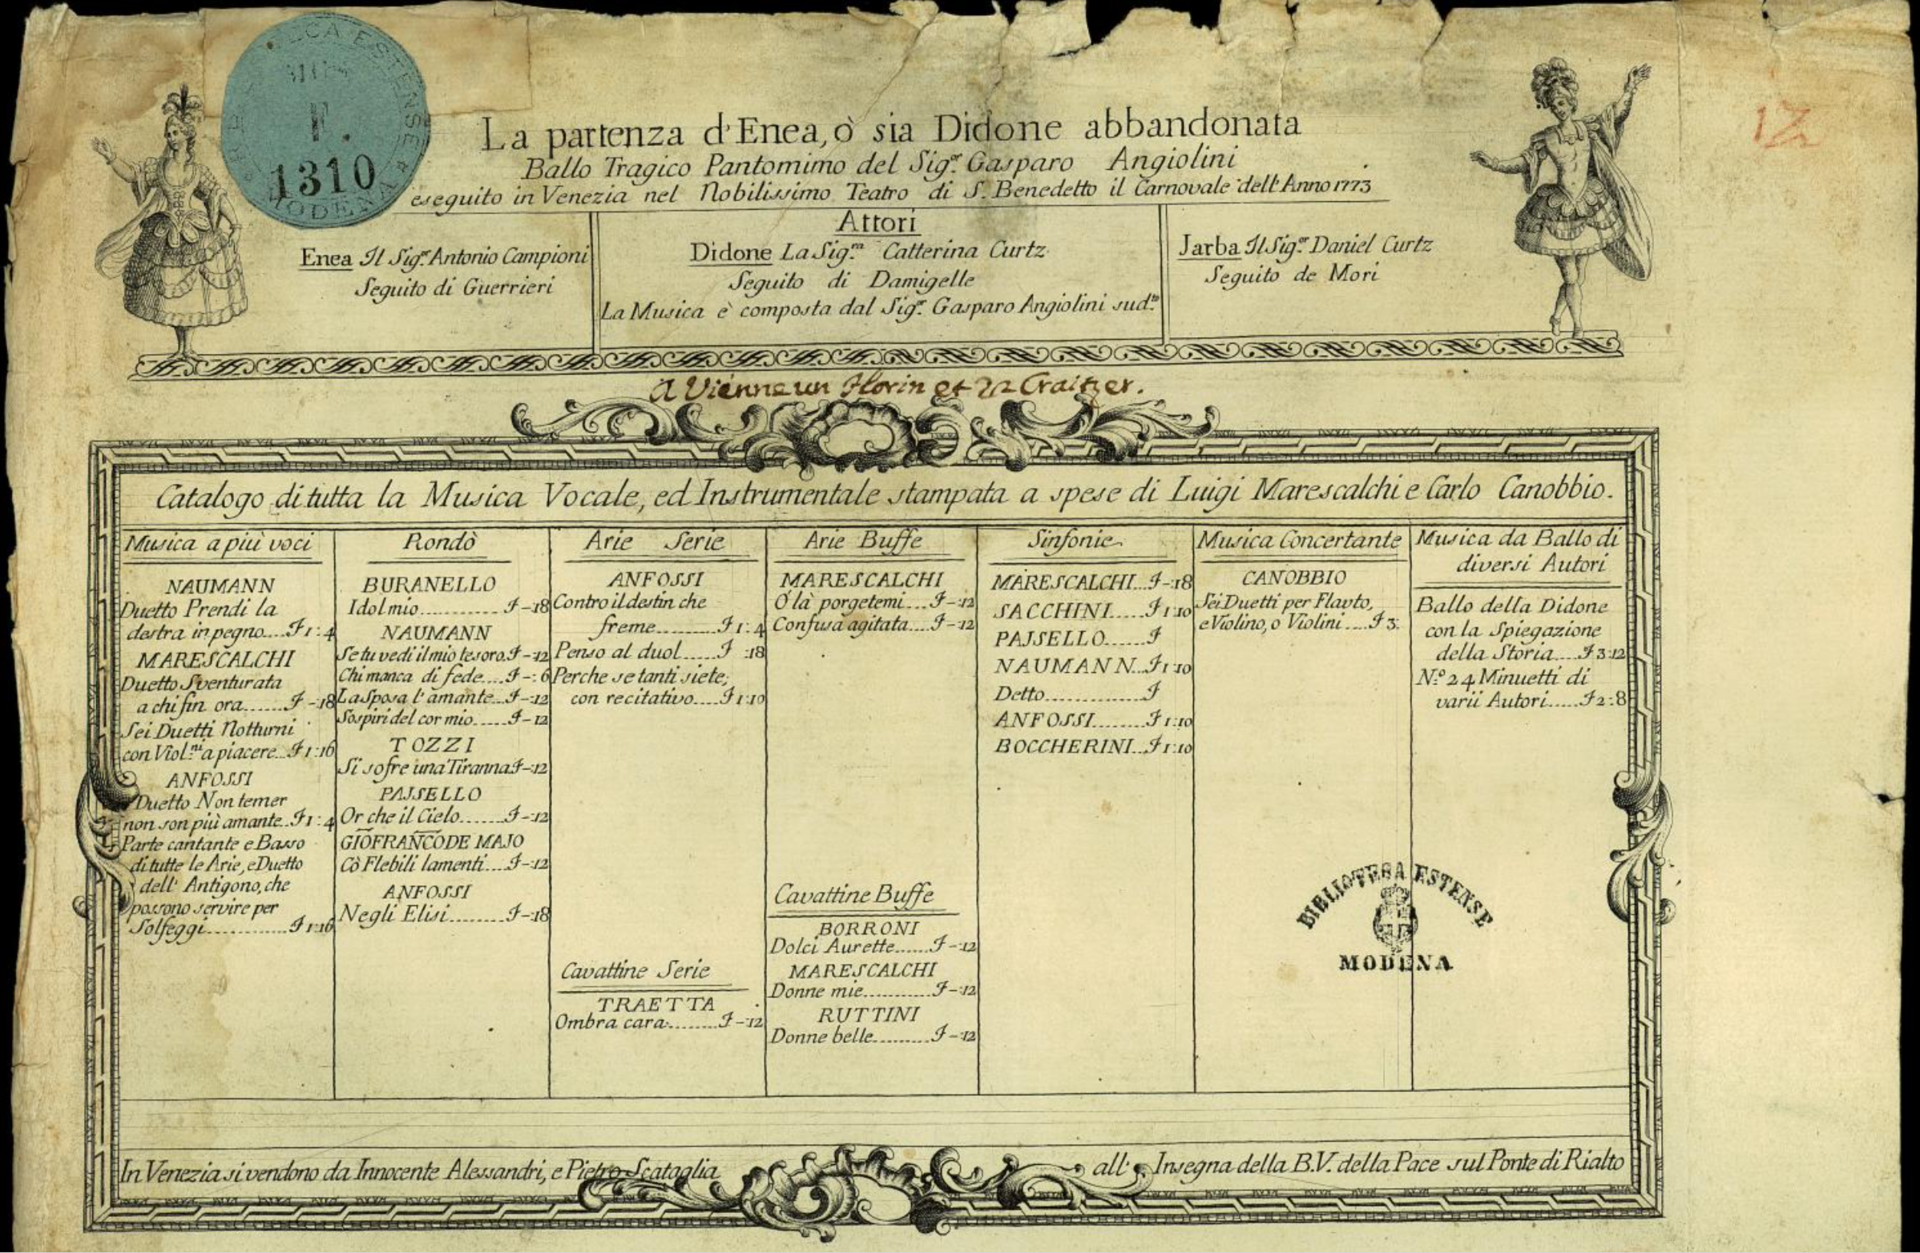 BIBLIOTECA ESTENSE
F.
1310
MODENA
12
La partenza d'Enea, ò sia Didone abbandonata
Ballo Tragico Pantomimo del Sig.r Gasparo Angiolini
eseguito in Venezia nel Nobilissimo Teatro di S. Benedetto il Carnovale dell'Anno 1773
Attori
Enea Il Sig.r Antonio Campioni
Seguito di Guerrieri
Didone La Sig.ra Catterina Curtz
Seguito di Damigelle
La Musica è composta dal Sig.r Gasparo Angiolini sud.to
Jarba Il Sig.r Daniel Curtz
Seguito de Mori
A Vienne un Florin et 12 Craitzer.
Catalogo di tutta la Musica Vocale, ed Instrumentale stampata a spese di Luigi Marescalchi e Carlo Canobbio.
Musica a più voci
NAUMANN
Duetto Prendi la
destra in pegno....F 1:4
MARESCALCHI
Duetto Sventurata
a chi fin ora.......F -:18
Sei Duetti Notturni
con Viol.ni a piacere...F 1:16
ANFOSSI
Duetto Non temer
non son più amante..F 1:4
Parte cantante e Basso
di tutte le Arie, e Duetto
dell' Antigono, che
possono servire per
Solfeggi.............F 1:16
Rondò
BURANELLO
Idol mio............F -:18
NAUMANN
Se tu vedi il mio tesoro.F -:12
Chi manca di fede....F -:6
La Sposa l'amante...F -:12
Sospiri del cor mio....F -:12
TOZZI
Si sofre una Tiranna F -:12
PAISELLO
Or che il Cielo.......F -:12
GIO FRANCO DE MAJO
Cò Flebili lamenti....F -:12
ANFOSSI
Negli Elisi.........F -:18
Arie Serie
ANFOSSI
Contro il destin che
freme..........F 1:4
Penso al duol......F :18
Perche se tanti siete,
con recitativo.....F 1:10
Cavattine Serie
TRAETTA
Ombra cara.........F -:12
Arie Buffe
MARESCALCHI
O là porgetemi....F -:12
Confusa agitata....F -:12
Cavattine Buffe
BORRONI
Dolci Aurette......F -:12
MARESCALCHI
Donne mie...........F -:12
RUTTINI
Donne belle..........F -:12
Sinfonie
MARESCALCHI...F -:18
SACCHINI.....F 1:10
PAISELLO......F
NAUMANN..F 1:10
Detto............F
ANFOSSI........F 1:10
BOCCHERINI...F 1:10
Musica Concertante
CANOBBIO
Sei Duetti per Flauto,
e Violino, o Violini.....F 3:
Musica da Ballo di
diversi Autori
Ballo della Didone
con la Spiegazione
della Storia....F 3:12
N.o 24 Minuetti di
varii Autori......F 2:8
BIBLIOTECA ESTENSE
MODENA
In Venezia si vendono da Innocente Alessandri, e Pietro Scataglia all' Insegna della B.V. della Pace sul Ponte di Rialto